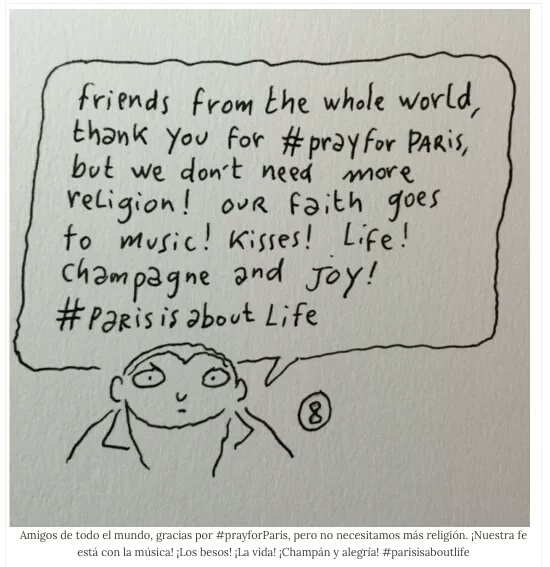 friends from the whole world,
thank you for #prayfor PARis,
but we don't need more
religion! our faith goes
to music! Kisses! Life!
Champagne and Joy!
#Parisis about Life
8
Amigos de todo el mundo, gracias por #prayforParis, pero no necesitamos más religión. ¡Nuestra fe
está con la música! ¡Los besos! ¡La vida! ¡Champán y alegría! #parisisaboutlife